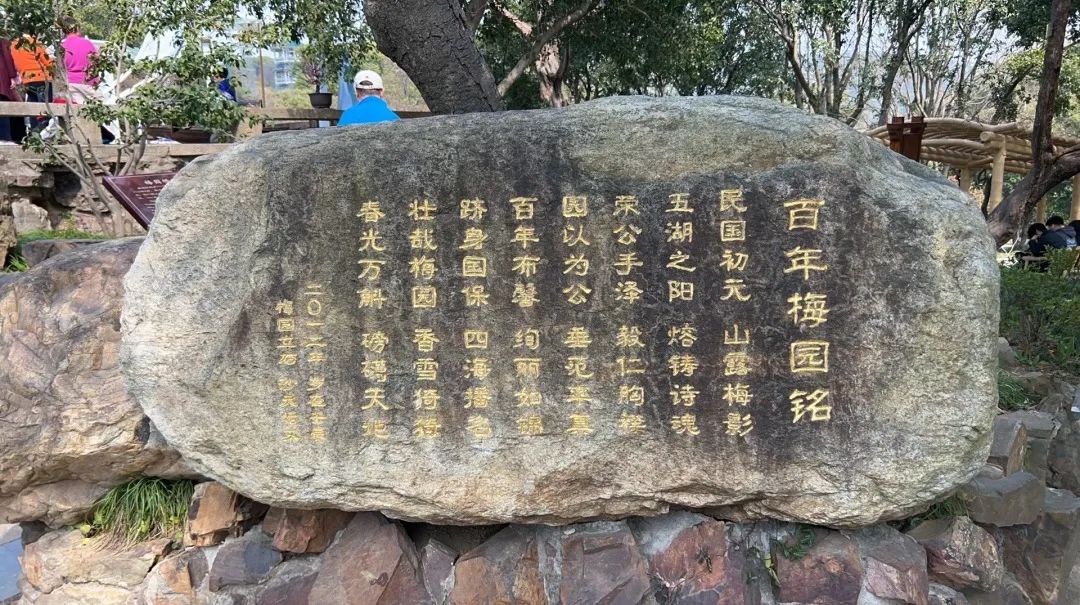 百年梅园铭
民国初元 山露梅影
五湖之阳 熔铸诗魂
荣公手泽 毅仁胸襟
园以为公 垂范率真
百年布馨 绚丽如锦
跻身国保 四海播名
壮哉梅园 香雪徜徉
春光万斛 磅礴天地
二〇一二年 岁在壬辰
梅园立石